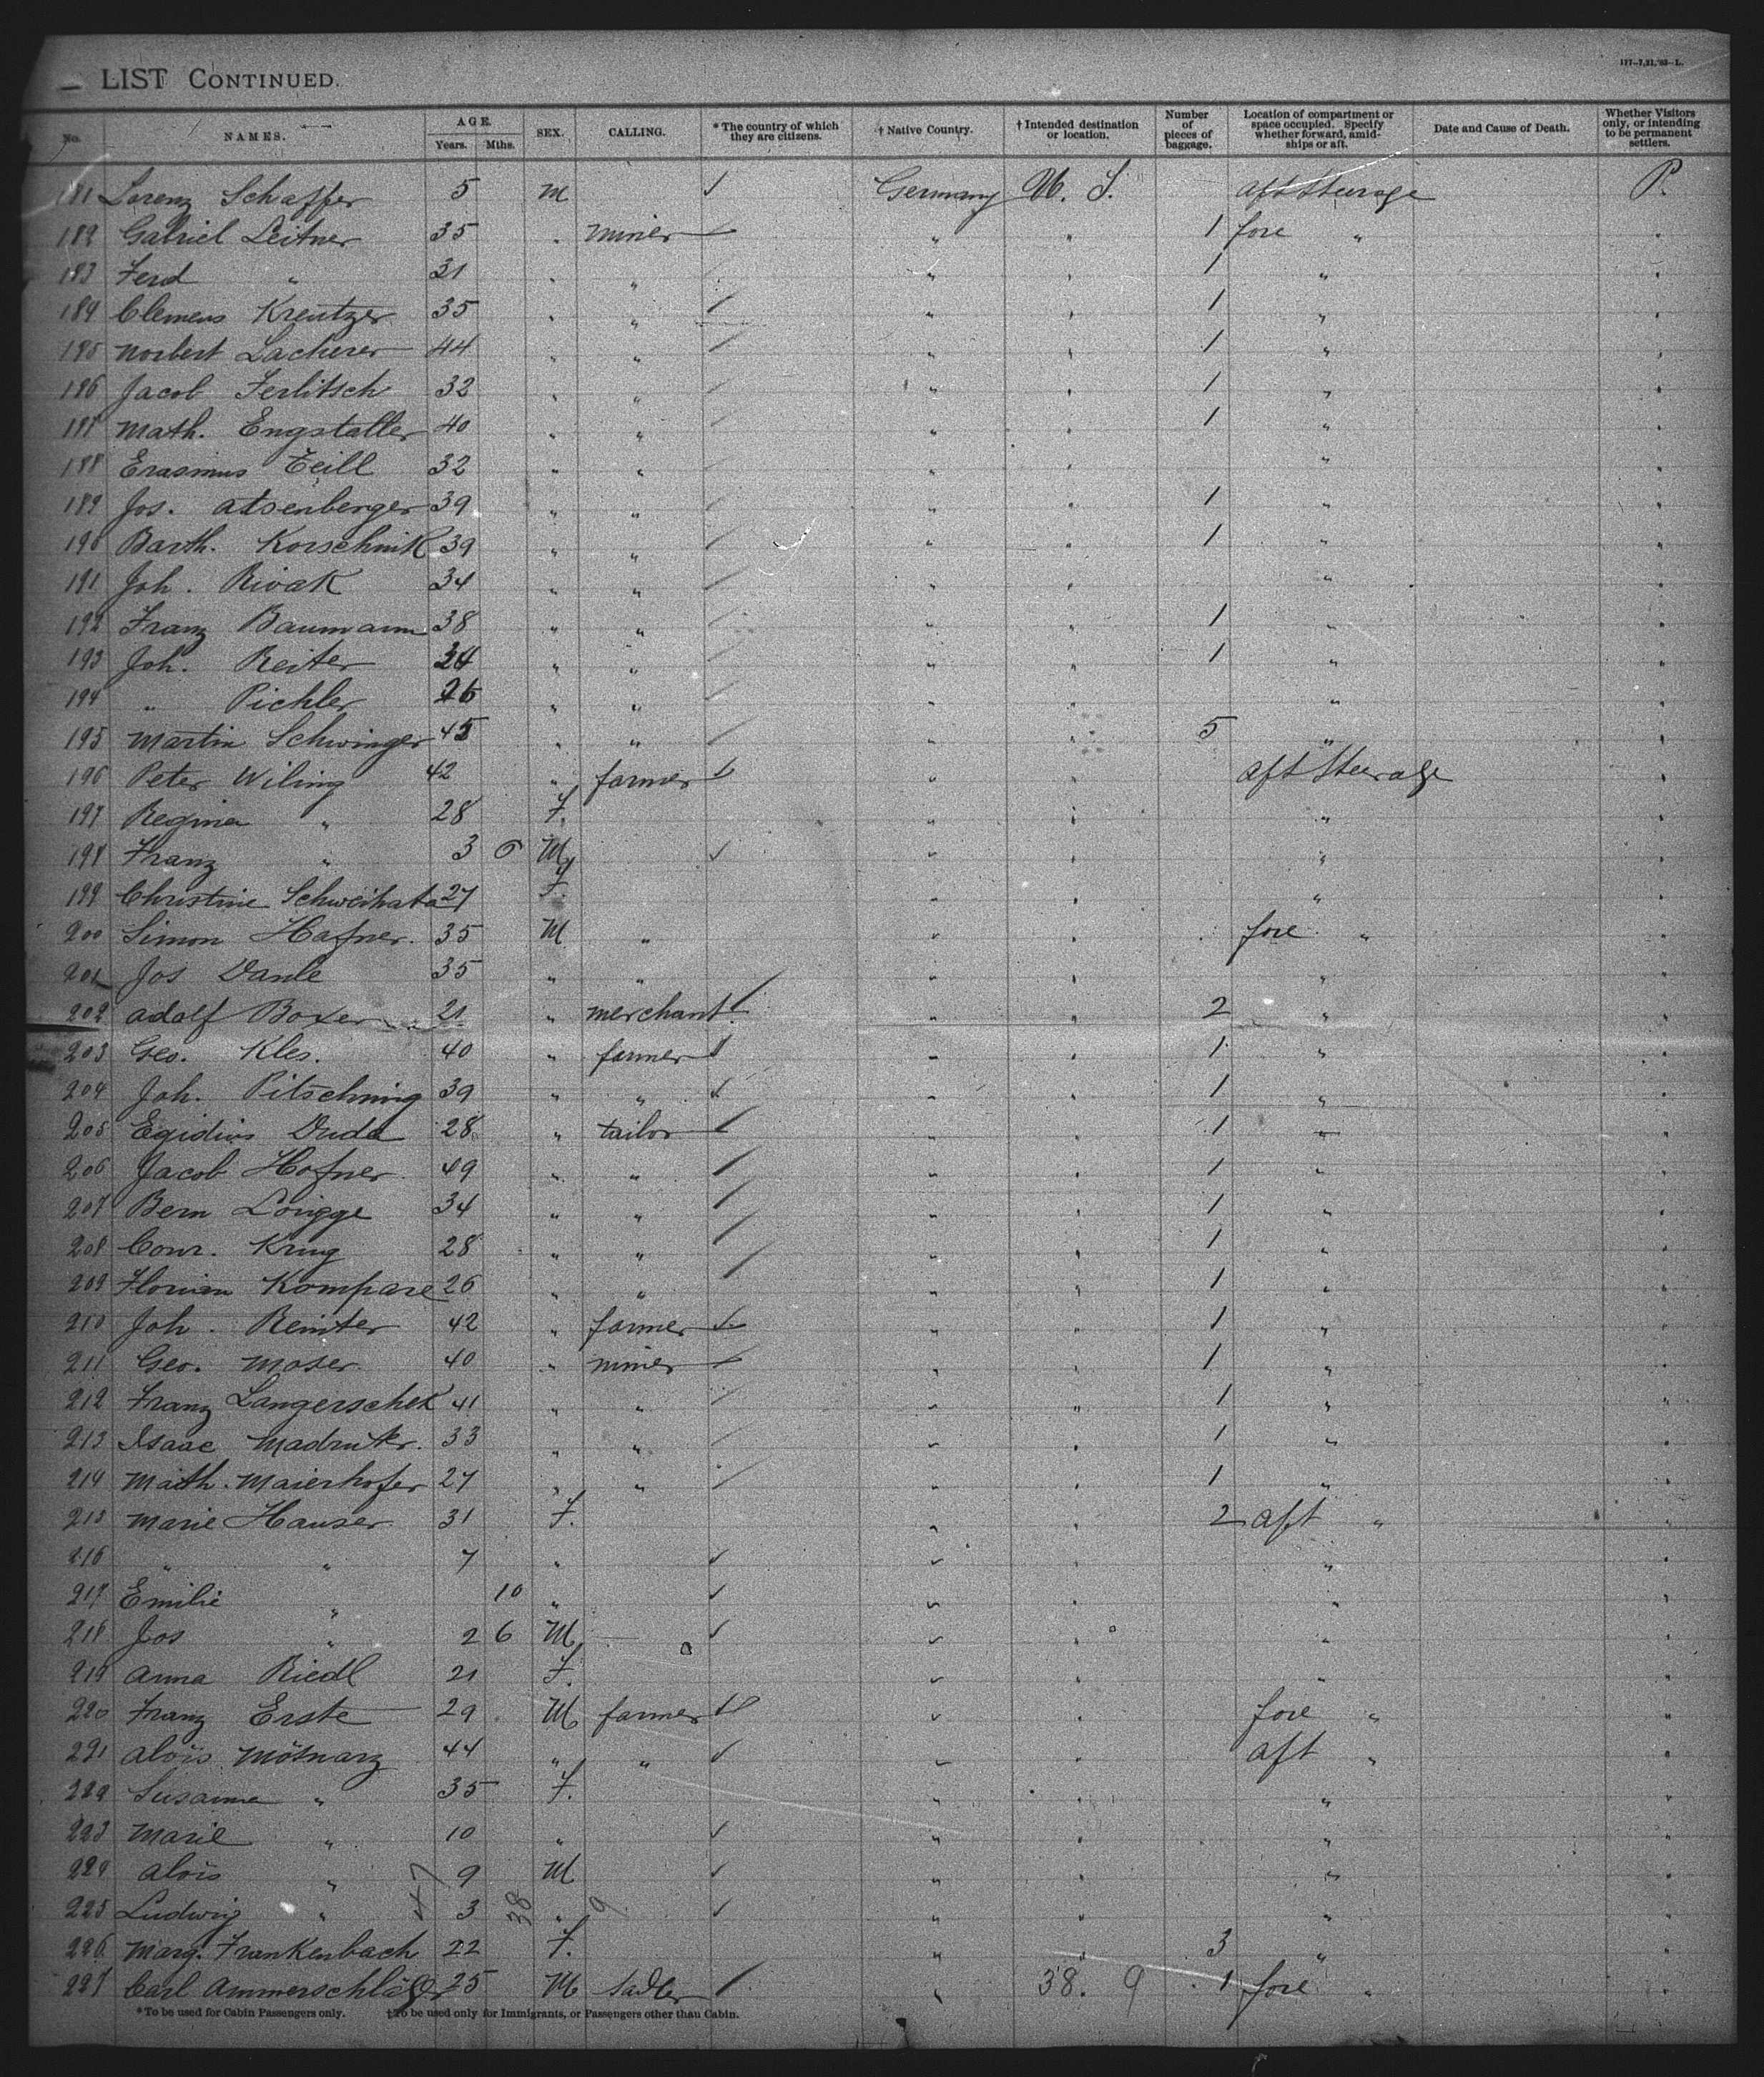 LIST CONTINUED.
117—7,21,'83—L.
No. NAMES. AGE. Years. Mths. SEX. CALLING. * The country of which they are citizens. † Native Country. † Intended destination or location. Number of pieces of baggage. Location of compartment or space occupied. Specify whether forward, amidships or aft. Date and Cause of Death. Whether Visitors only, or intending to be permanent settlers.
181 Lorenz Schaffer 5 M Germany U. S. aft Steerage P.
182 Gabriel Leitner 35 " miner " " 1 fore " "
183 Ferd " 31 " " " " 1 " "
184 Clemens Kreutzer 35 " " " " 1 " "
185 Norbert Lacherer 44 " " " " 1 " "
186 Jacob Ferlitsch 32 " " " " 1 " "
187 Math. Engstaller 40 " " " " 1 " "
188 Erasmus Zeill 32 " " " " " "
189 Jos. Atsenberger 39 " " " " 1 " "
190 Barth. Korschnik 39 " " " " 1 " "
191 Joh. Rivak 34 " " " " " "
192 Franz Baumann 38 " " " " 1 " "
193 Joh. Reiter 34 " " " " 1 " "
194 " Pichler 26 " " " " " "
195 Martin Schwinger 45 " " " " 5 " "
196 Peter Wiling 42 " farmer " " aft Steerage "
197 Regina " 28 F. " " " "
198 Franz " 3 6 M " " " "
199 Christine 27 F. " " " "
200 Simon Hafner. 35 M " " " fore " "
201 Jos Danle 35 " " " " " "
202 Adolf Boxer 21 " merchant " " 2 " "
203 Geo. Kles. 40 " farmer " " 1 " "
204 Joh. Pitschning 39 " " " " 1 " "
205 Egidius Duda 28 " tailor " " 1 " "
206 Jacob Hofner 49 " " " " 1 " "
207 Bern Loigge 34 " " " " 1 " "
208 Conr. Krug 28 " " " " 1 " "
209 Florian Kompare 26 " " " " 1 " "
210 Joh. Remter 42 " farmer " " 1 " "
211 Geo. Moser 40 " miner " " 1 " "
212 Franz Langerschek 41 " " " " 1 " "
213 Isaac 33 " " " " 1 " "
214 Math. Maierhofer 27 " " " " 1 " "
215 Marie Hauser 31 F. " " 2 aft " "
216 " " 7 " " " " "
217 Emilie " 10 " " " " "
218 Jos " 2 6 M " " " "
219 Anna Riedl 21 F. " " " "
220 Franz Erste 29 M farmer " " fore " "
221 Alois Mösnarz 44 " " " " aft " "
222 Susanna " 35 F. " " " "
223 Marie " 10 " " " " "
224 Alois " 9 M " " " "
225 Ludwig " 3 " " " " "
47 38 9
226 Marg. Frankenbach 22 F. " " 3 " "
227 Carl Ammerschläger 25 M Sadler " 38. 9 1 fore " "
*To be used for Cabin Passengers only. †To be used only for Immigrants, or Passengers other than Cabin.